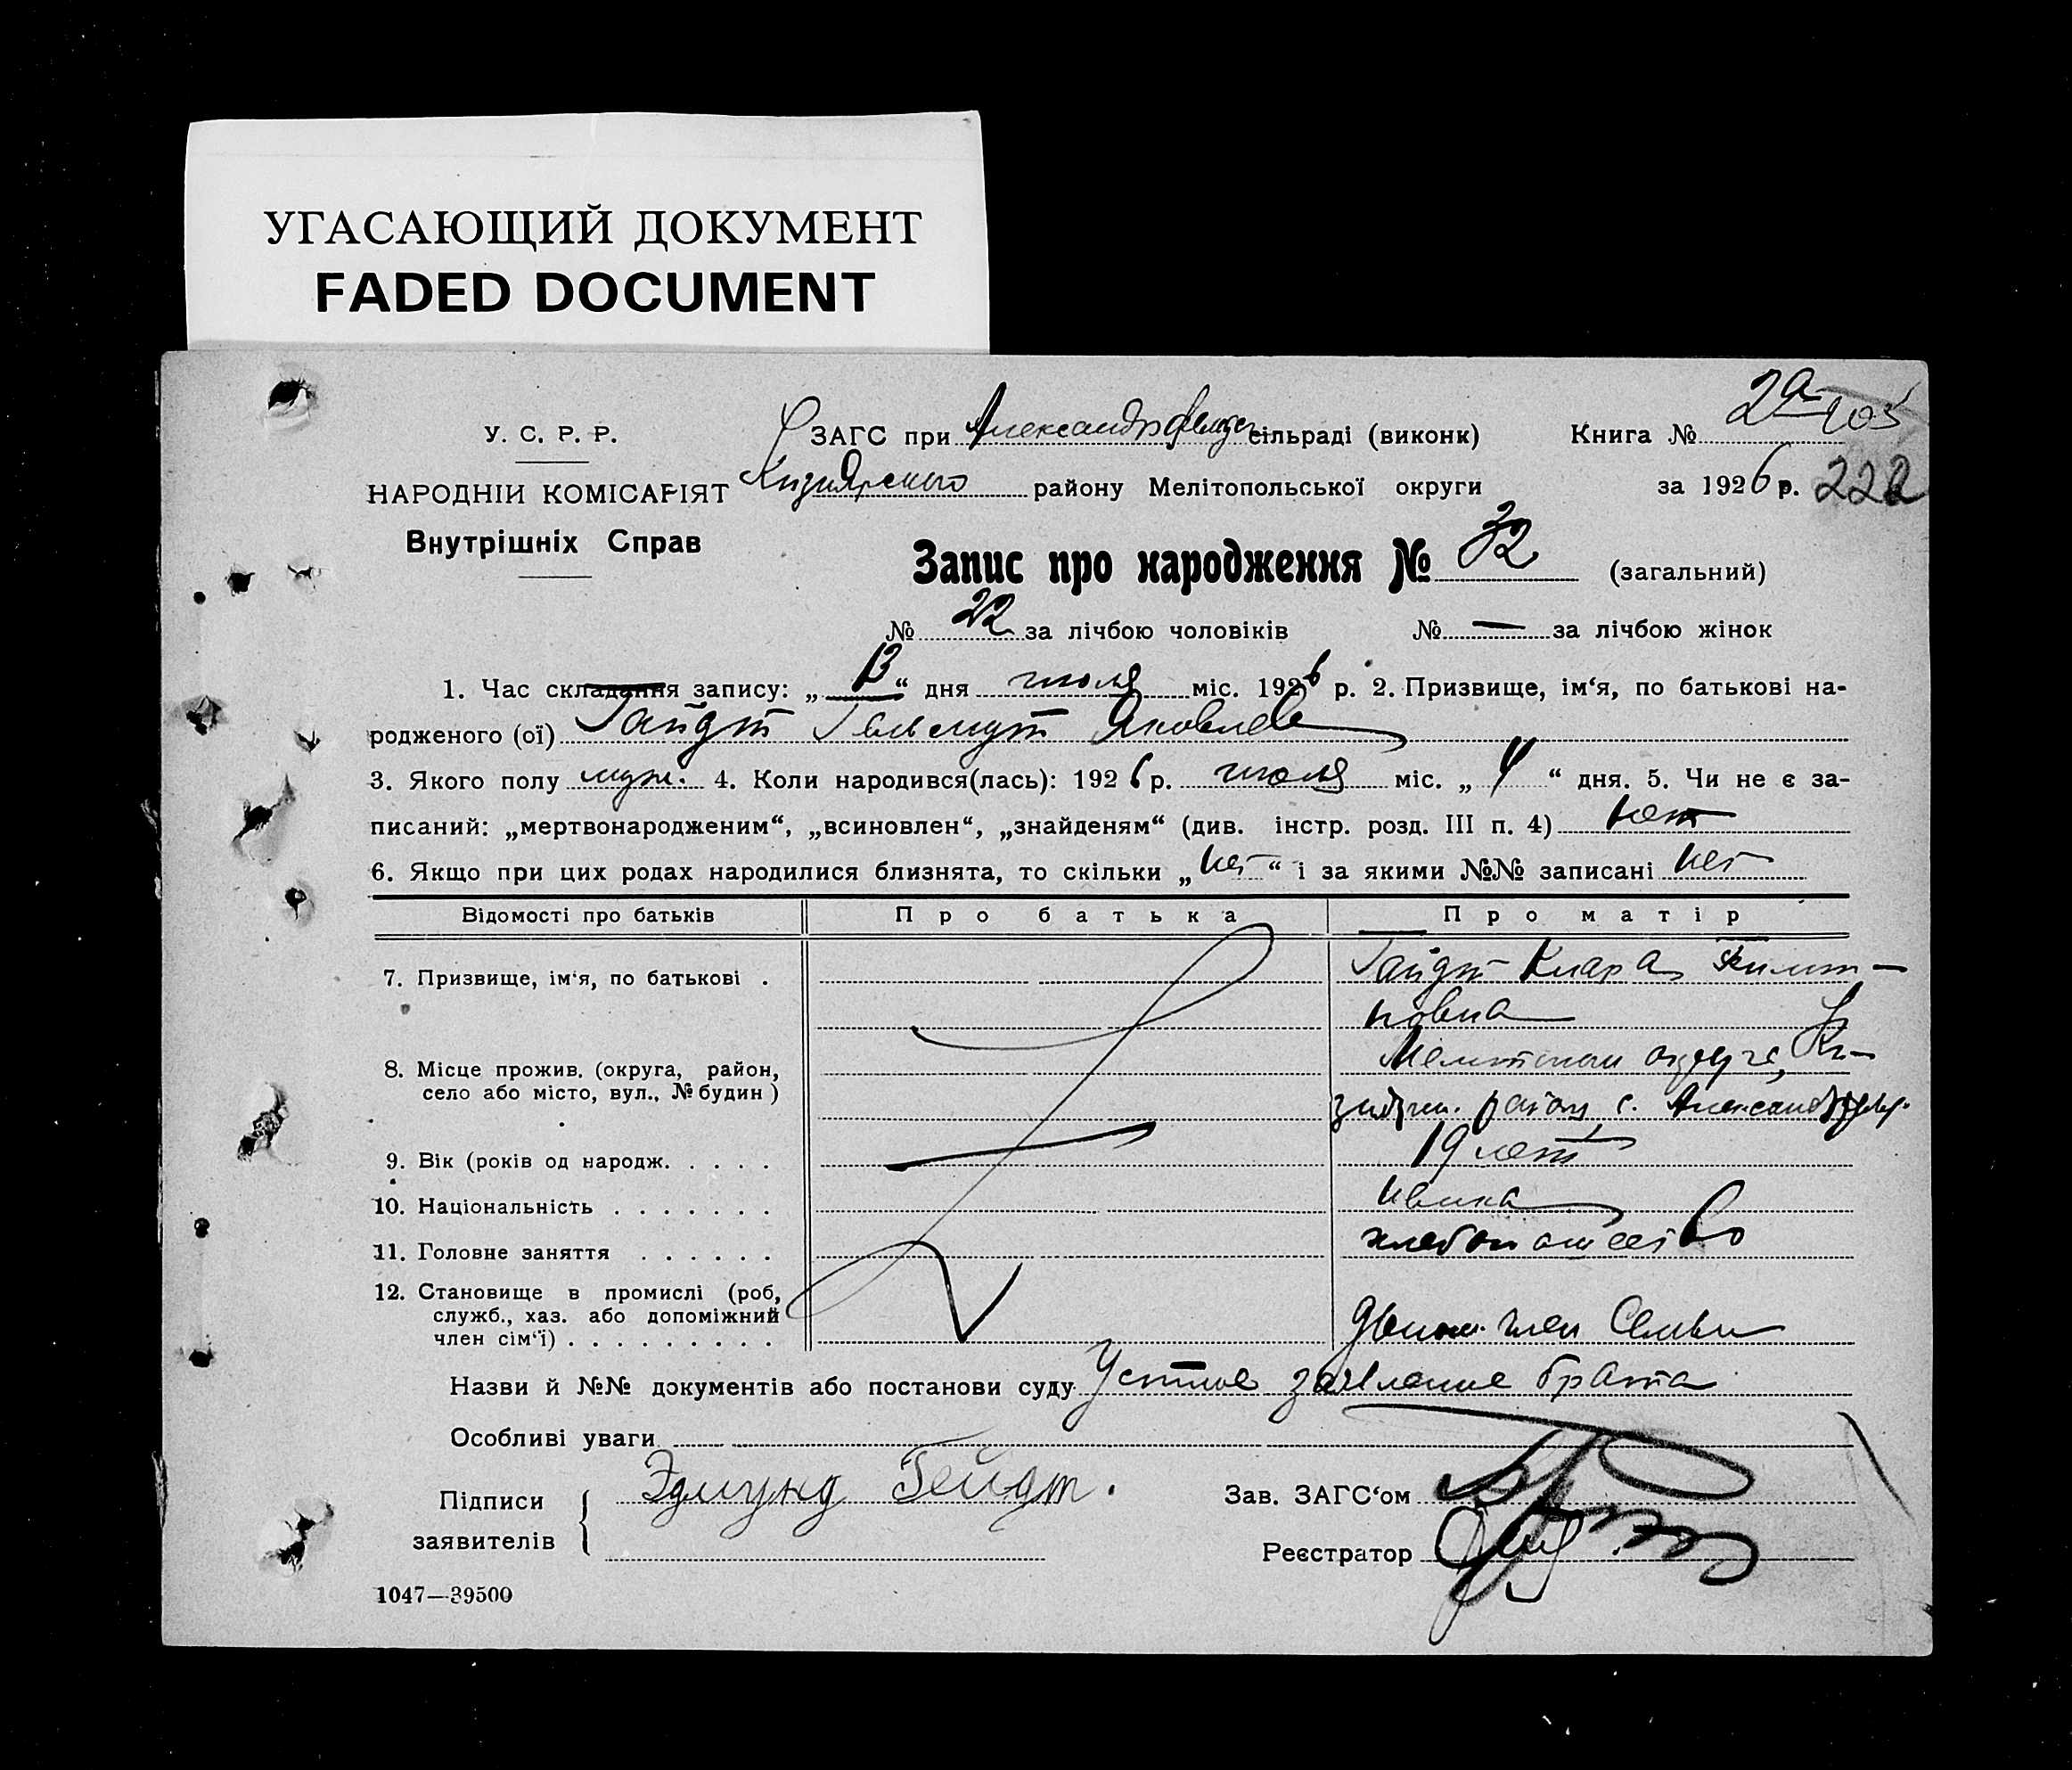 УГАСАЮЩИЙ ДОКУМЕНТ
FADED DOCUMENT
У. С. Р. Р.
НАРОДНІЙ КОМІСАРІЯТ
Внутрішніх Справ
ЗАГС при Александрфельдс. сільраді (виконк)
Кизиярского району Мелітопольської округи
Книга № 2а 105
за 1926 р. 222
Запис про народження № 32 (загальний)
№ 22 за лічбою чоловіків № — за лічбою жінок
1. Час складання запису: „13“ дня июля міс. 1926 р. 2. Призвище, ім‘я, по батькові на-
родженого (ої) Гайдт Гельмут Яковлев
3. Якого полу муж. 4. Коли народився(лась): 1926 р. июля міс. „4“ дня. 5. Чи не є за-
писаний: „мертвонародженим“, „всиновлен“, „знайденям“ (див. інстр. розд. III п. 4) нет
6. Якщо при цих родах народилися близнята, то скільки „нет“ і за якими №№ записані нет
Відомості про батьків Про батька Про матір
7. Призвище, ім‘я, по батькові . Гайдт Клара Филип-
повна
8. Місце прожив. (округа, район, село або місто, вул., № будин ) Мелитопол округа, Ки-
зиярск. район, с. Александрфельд.
9. Вік (років од народж. . . . . 19 лет
10. Національність . . . . . . . немка
11. Головне заняття . . . . . . хлебопашество
12. Становище в промислі (роб,
служб., хаз. або допоміжний
член сім‘ї) . . . . . . . . . член Семьи
Назви й №№ документів або постанови суду Устное заявление брата
Особливі уваги
Підписи
заявителів
Эдмунд Гейдт.
Зав. ЗАГС‘ом
Реєстратор
1047—39500